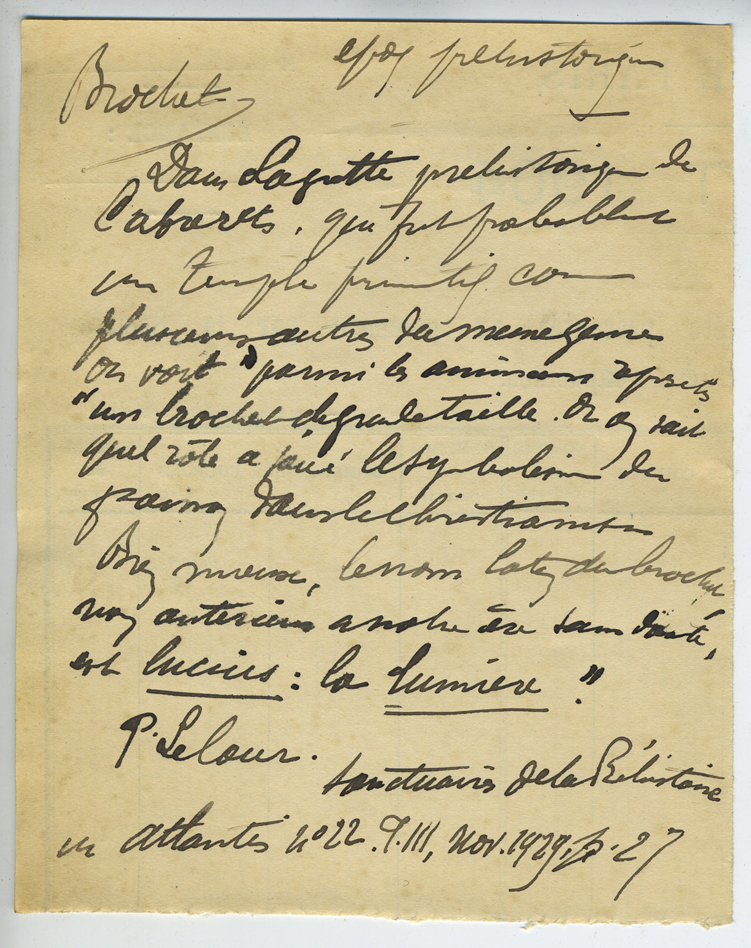 Brochet
epoq préhistorique
Dans la grotte prehistorique de
Cabrerets, qui fut probablement
un temple primitif comme
plusieurs autres du meme genre
on voit " parmi les animaux
" un brochet de grande taille. On sait
quel rôle a joué le symbolisme du
poisson dans le christianisme
Bien mieux, le nom latin du brochet,
non anterieur a notre ère sans doute,
est lucius : la lumière "
P. Lecour.
Sanctuaires de la Préhistoire
in Atlantis n° 22. T. III, Nov. 1929, p. 27